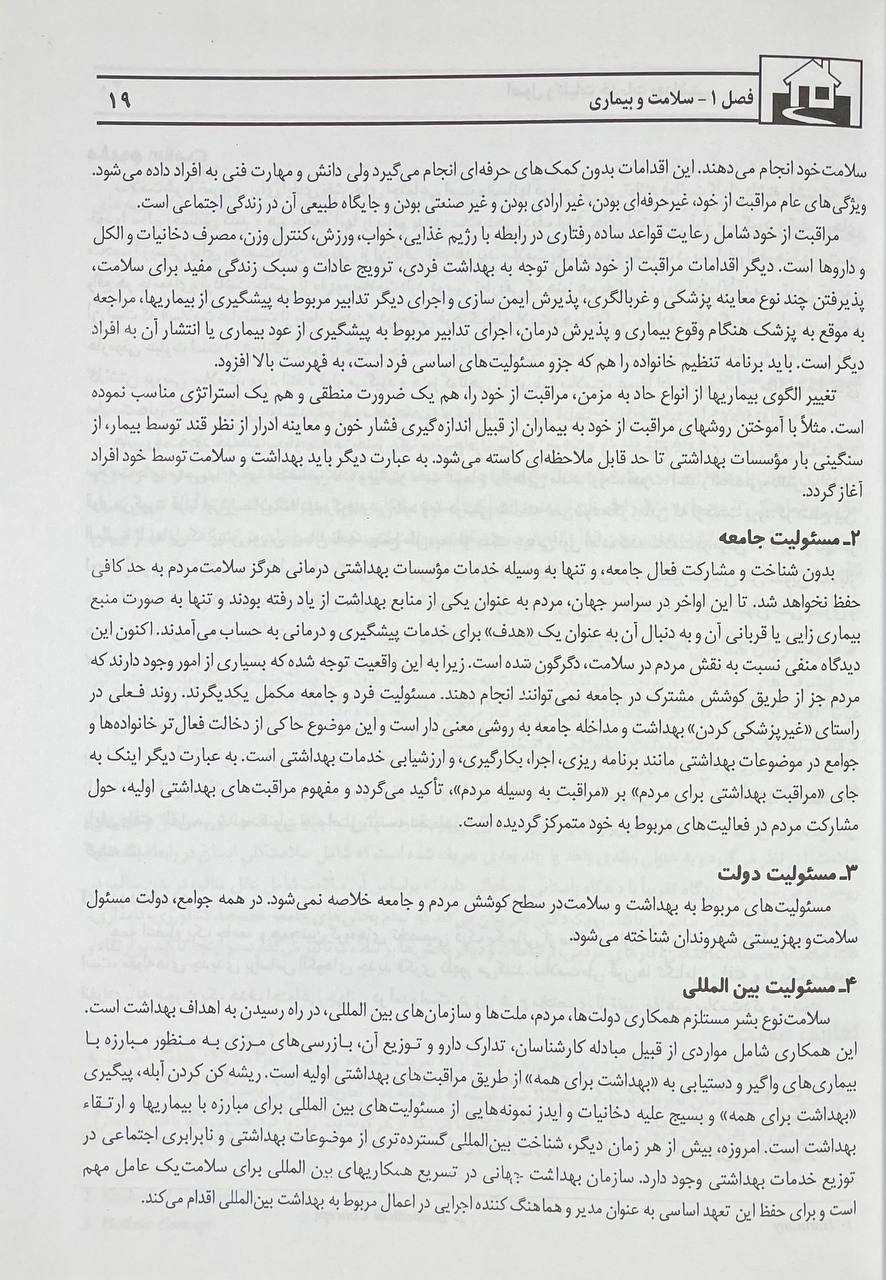 فصل ۱ - سلامت و بیماری
۱۹
سلامت خود انجام می‌دهند. این اقدامات بدون کمک‌های حرفه‌ای انجام می‌گیرد ولی دانش و مهارت فنی به افراد داده می‌شود.
ویژگی‌های عام مراقبت از خود، غیرحرفه‌ای بودن، غیر ارادی بودن و غیر صنعتی بودن و جایگاه طبیعی آن در زندگی اجتماعی است.
مراقبت از خود شامل رعایت قواعد ساده رفتاری در رابطه با رژیم غذایی، خواب، ورزش، کنترل وزن، مصرف دخانیات و الکل
و داروها است. دیگر اقدامات مراقبت از خود شامل توجه به بهداشت فردی، ترویج عادات و سبک زندگی مفید برای سلامت،
پذیرفتن چند نوع معاینه پزشکی و غربالگری، پذیرش ایمن سازی و اجرای دیگر تدابیر مربوط به پیشگیری از بیماریها، مراجعه
به موقع به پزشک هنگام وقوع بیماری و پذیرش درمان، اجرای تدابیر مربوط به پیشگیری از عود بیماری یا انتشار آن به افراد
دیگر است. باید برنامه تنظیم خانواده را هم که جزو مسئولیت‌های اساسی فرد است، به فهرست بالا افزود.
تغییر الگوی بیماریها از انواع حاد به مزمن، مراقبت از خود را، هم یک ضرورت منطقی و هم یک استراتژی مناسب نموده
است. مثلاً با آموختن روشهای مراقبت از خود به بیماران از قبیل اندازه‌گیری فشار خون و معاینه ادرار از نظر قند توسط بیمار، از
سنگینی بار مؤسسات بهداشتی تا حد قابل ملاحظه‌ای کاسته می‌شود. به عبارت دیگر باید بهداشت و سلامت توسط خود افراد
آغاز گردد.
۲ـ مسئولیت جامعه
بدون شناخت و مشارکت فعال جامعه، و تنها به وسیله خدمات مؤسسات بهداشتی درمانی هرگز سلامت مردم به حد کافی
حفظ نخواهد شد. تا این اواخر در سراسر جهان، مردم به عنوان یکی از منابع بهداشت از یاد رفته بودند و تنها به صورت منبع
بیماری زایی یا قربانی آن و به دنبال آن به عنوان یک «هدف» برای خدمات پیشگیری و درمانی به حساب می‌آمدند. اکنون این
دیدگاه منفی نسبت به نقش مردم در سلامت، دگرگون شده است. زیرا به این واقعیت توجه شده که بسیاری از امور وجود دارند که
مردم جز از طریق کوشش مشترک در جامعه نمی‌توانند انجام دهند. مسئولیت فرد و جامعه مکمل یکدیگرند. روند فعلی در
راستای «غیرپزشکی کردن» بهداشت و مداخله جامعه به روشی معنی دار است و این موضوع حاکی از دخالت فعال‌تر خانواده‌ها و
جوامع در موضوعات بهداشتی مانند برنامه ریزی، اجرا، بکارگیری، و ارزشیابی خدمات بهداشتی است. به عبارت دیگر اینک به
جای «مراقبت بهداشتی برای مردم» بر «مراقبت به وسیله مردم»، تأکید می‌گردد و مفهوم مراقبت‌های بهداشتی اولیه، حول
مشارکت مردم در فعالیت‌های مربوط به خود متمرکز گردیده است.
۳ـ مسئولیت دولت
مسئولیت‌های مربوط به بهداشت و سلامت در سطح کوشش مردم و جامعه خلاصه نمی‌شود. در همه جوامع، دولت مسئول
سلامت و بهزیستی شهروندان شناخته می‌شود.
۴ـ مسئولیت بین المللی
سلامت نوع بشر مستلزم همکاری دولت‌ها، مردم، ملت‌ها و سازمان‌های بین المللی، در راه رسیدن به اهداف بهداشت است.
این همکاری شامل مواردی از قبیل مبادله کارشناسان، تدارک دارو و توزیع آن، بازرسی‌های مرزی به منظور مبارزه با
بیماری‌های واگیر و دستیابی به «بهداشت برای همه» از طریق مراقبت‌های بهداشتی اولیه است. ریشه کن کردن آبله، پیگیری
«بهداشت برای همه» و بسیج علیه دخانیات و ایدز نمونه‌هایی از مسئولیت‌های بین المللی برای مبارزه با بیماریها و ارتقاء
بهداشت است. امروزه، بیش از هر زمان دیگر، شناخت بین‌المللی گسترده‌تری از موضوعات بهداشتی و نابرابری اجتماعی در
توزیع خدمات بهداشتی وجود دارد. سازمان بهداشت جهانی در تسریع همکاریهای بین المللی برای سلامت یک عامل مهم
است و برای حفظ این تعهد اساسی به عنوان مدیر و هماهنگ کننده اجرایی در اعمال مربوط به بهداشت بین‌المللی اقدام می‌کند.